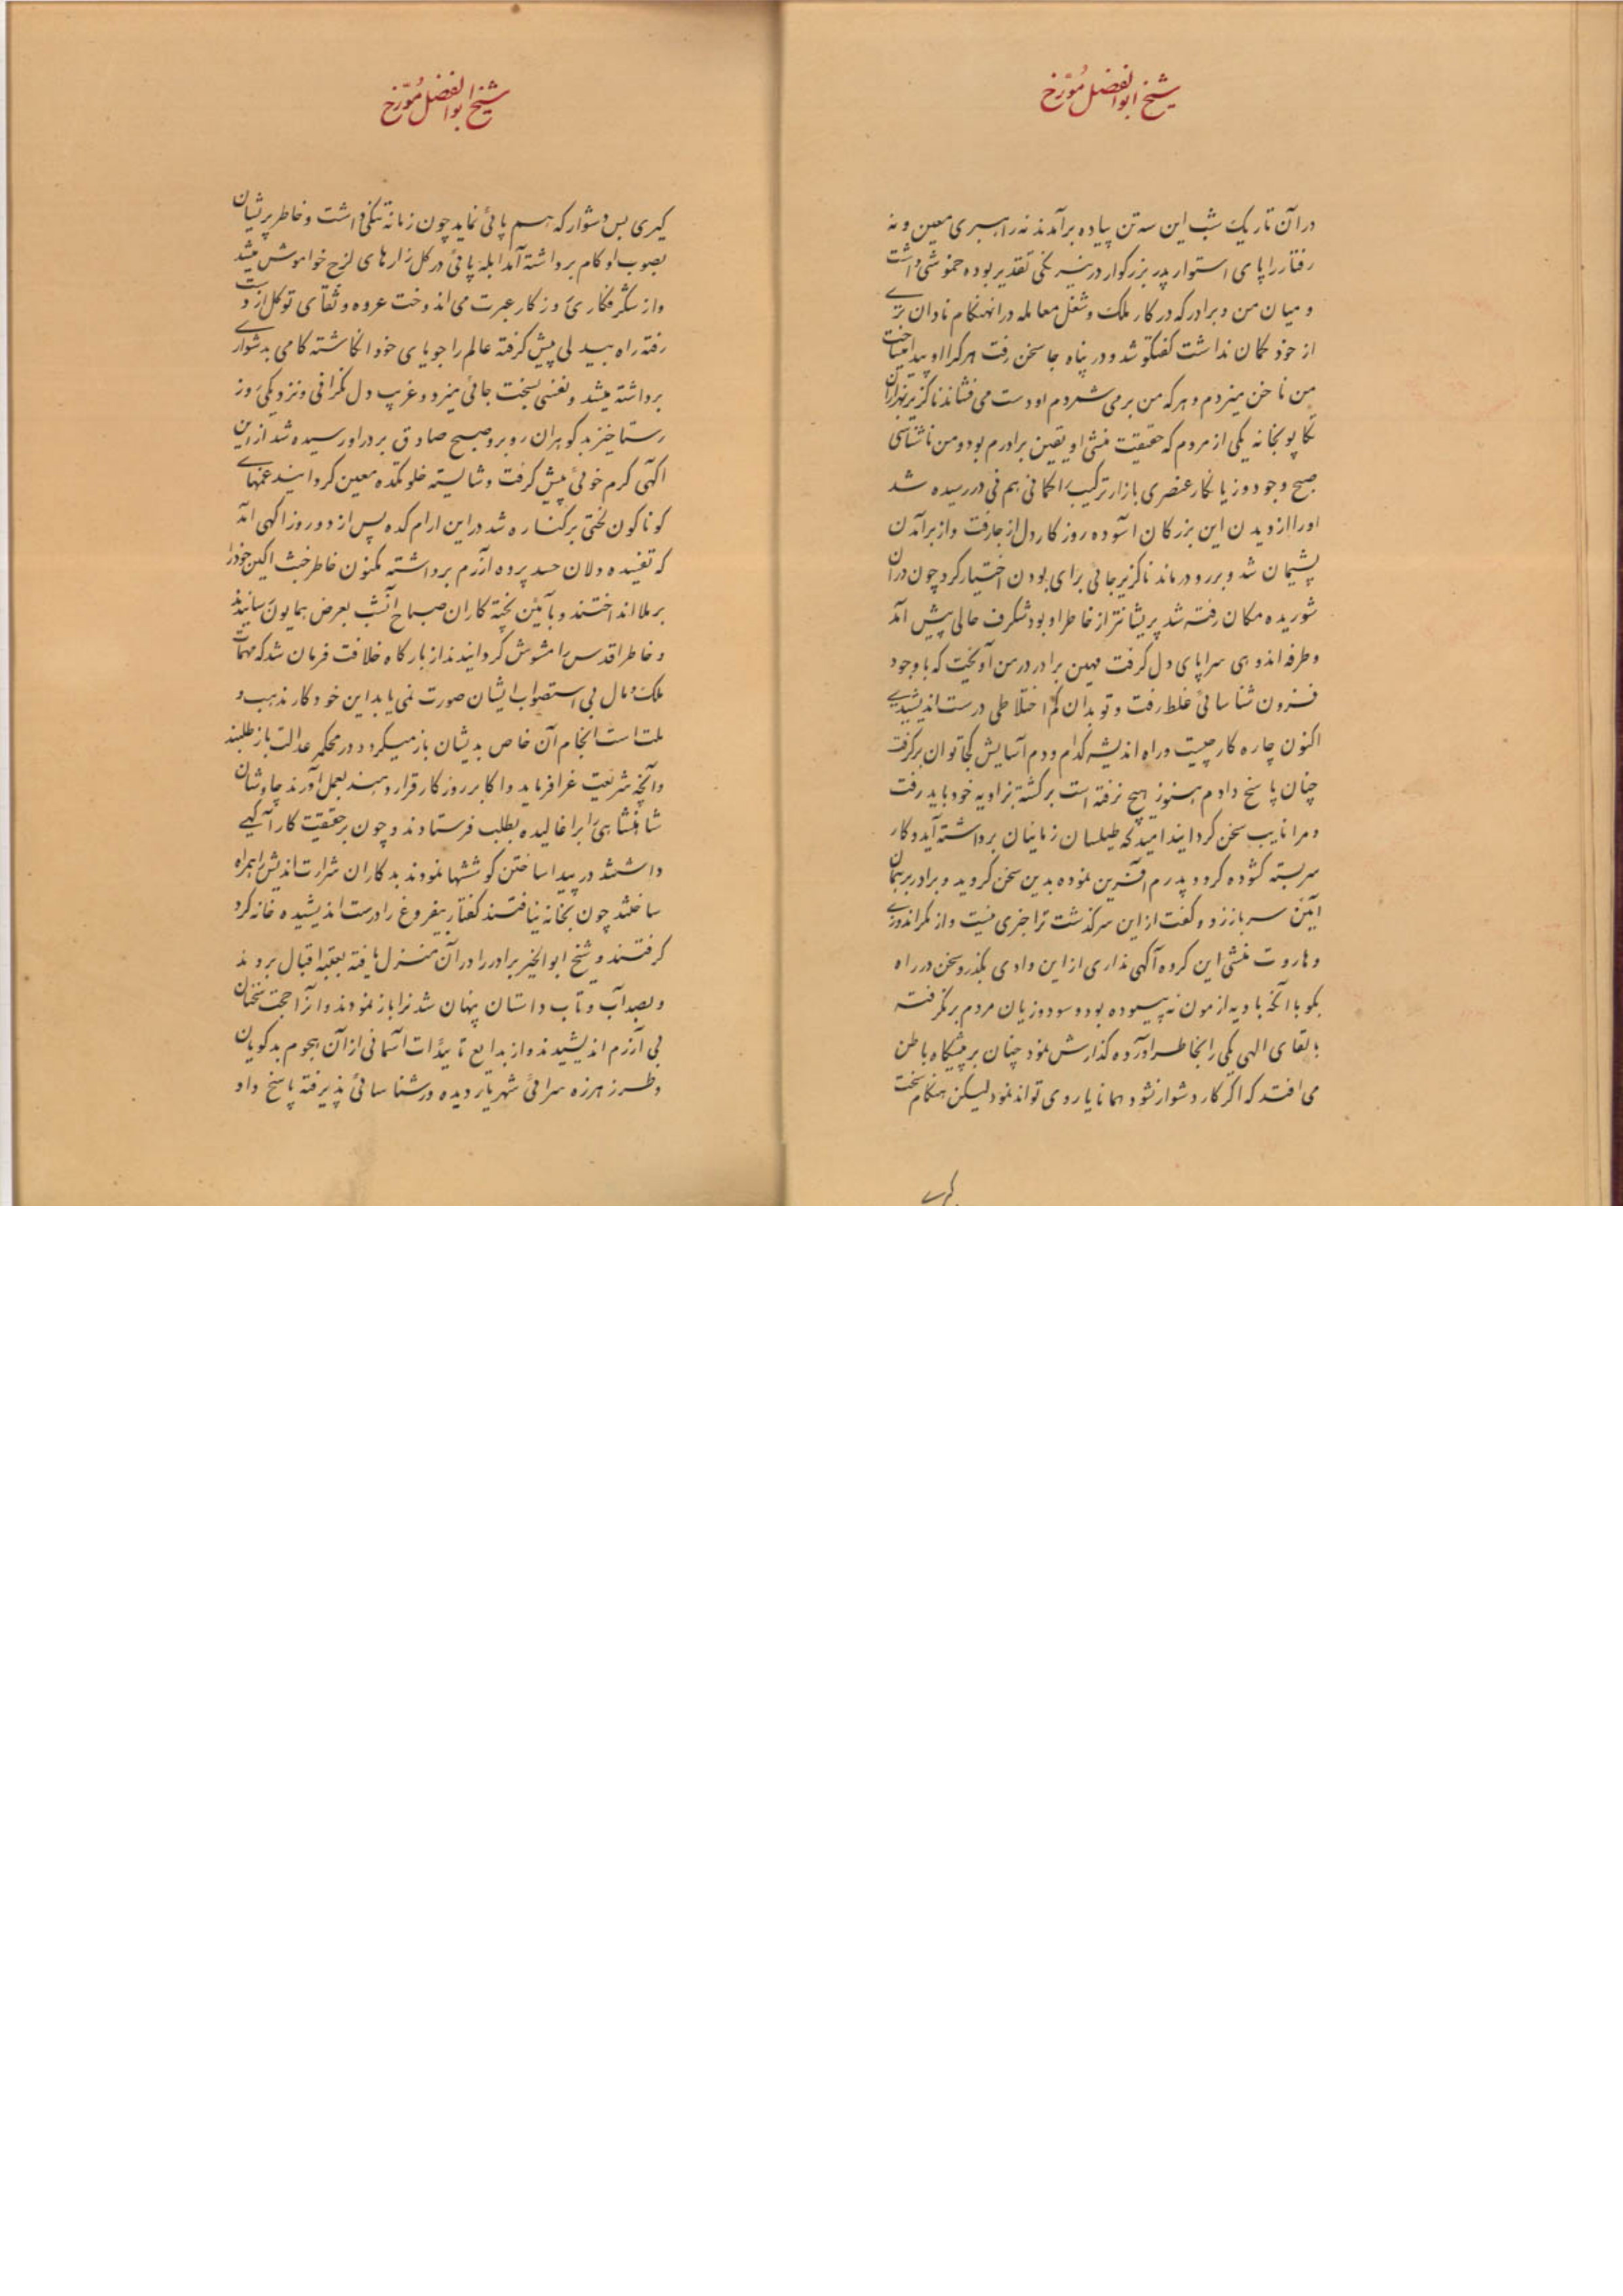 شیخ ابوالفضل مورّخ
در آن تاریک شب این سه تن پیاده برآمدند نه راهبری معین و نه
رفتار را پای استوار پدر بزرگوار در نیرنگی تقدیر بوده خموشی داشت
و میان من و برادر که در کار ملک و شغل معامله در انهنکام نادان ترے
از خود کمان نداشت کفتکو شد و در پناه جا سخن رفت هر کرا او پیدا میساخت
من ناخن میزدم و هر که من بر می شمردم او دست می فشاند ناکزیر
تکاپو بخانه یکی از مردم که حقیقت منشی او یقین برادرم بود و من ناشناسی
صبح وجود و زیانکار عنصری بازار ترکیب امکانی هم فی در رسیده شد
او را از دیدن این بزرکان آسوده روزکار دل از جا رفت و از برآمدن
پشیمان شد و برو درماند ناکزیر جائی برای بودن اختیار کرد چون در آن
شوریده مکان رفته شد پریشانتر از خاطر او بود شکرف حالی پیش آمد
و طرفه اندوهی سراپای دل کرفت مهین برادر در من آویخت که با وجود
فزون شناسائی غلط رفت و تو بدان کم اختلاطی درست اندیشیدے
اکنون چاره کار چیست و راه اندیشه کدام و دم آسایش کجا توان برکرفت
چنان پاسخ دادم هنوز هیچ نرفته است برکشته بزاویه خود باید رفت
و مرا نایب سخن کردانید امید که طیلسان زمانیان برداشته آید و کار
سربسته کشوده کردد پدرم آفرین نموده بدین سخن کروید و برادر برهمان
آیین سر باز زد و کفت از این سرکذشت ترا خبری نیست و از مکر اندوزے
و هاروت منشی این کروه آکهی نداری از این وادی بکذر و سخن در راه
بکو با آنکه بادیه ازمون نه پیموده بود و سود و زیان مردم برنکرفته
بالقای الهی یکی را بخاطر آورده کذارش نمود چنان بر پیشکاه باطن
می افتد که اکر کار دشوار نشود همانا یاروی تواند نمود لیکن هنکام سخت
کیرے
شیخ ابوالفضل مورّخ
کیری بس دشوار که هسم پائی نماید چون زمانه تنکی داشت و خاطر پریشان
بصوب او کام برداشته آمد ابله پائی در کل زارهای لزج خراموش میشد
و از شکرفکاری روزکار عبرت می اندوخت عروه وثقای توکل از دست
رفته راه بیدلی پیش کرفته عالم را جویای خود انکاشته کامی بدشواری
برداشته میشد و نفسی بسخت جانی میزد و غریب دل نکرانی و نزدیکی روز
رستاخیز بدکوهران روبرو صبح صادق بر در او رسیده شد از این
اکهی کرم خوئی پیش کرفت و شایسته خلوتکده معین کردانید غمهاے
کوناکون لختی برکناره شد در این ارام کده پس از دو روز اکهی آمد
که تفسیده دلان حسد پرده آزرم برداشته مکنون خاطر خبث آکین خود را
بر ملا انداختند و بآیین پخته کاران صباح آنشب بعرض همایون رسانیدند
و خاطر اقدس را مشوش کردانیدند از بارکاه خلافت فرمان شد که مهمات
ملک و مال بی استصواب ایشان صورت نمی یابد این خود کار مذهب و
ملت است انجام آن خاص بدیشان باز میکردد در محکمه عدالت باز طلبند
و آنچه شریعت غرا فرماید و اکابر روزکار قرار دهند بعمل آورند چاوشان
شاهنشاهی را برآغالیده بطلب فرستادند و چون بر حقیقت کار آکهی
داشتند در پیدا ساختن کوششها نمودند بدکاران شرارت اندیش را همراه
ساختند چون بخانه نیافتند کفتار بیفروغ را درست اندیشیده خانه کرد
کرفتند و شیخ ابوالخیر برادر را در آن منزل یافته بعتبه اقبال بردند
و بصد آب و تاب داستان پنهان شدن را باز نمودند و آنرا حجت سخنان
بی آزرم اندیشیدند و از بدایع تاییدات آسمانی از آن هجوم بدکویان
و طرز هرزه سرائی شهریار دیده ور شناسائی پذیرفته پاسخ داد